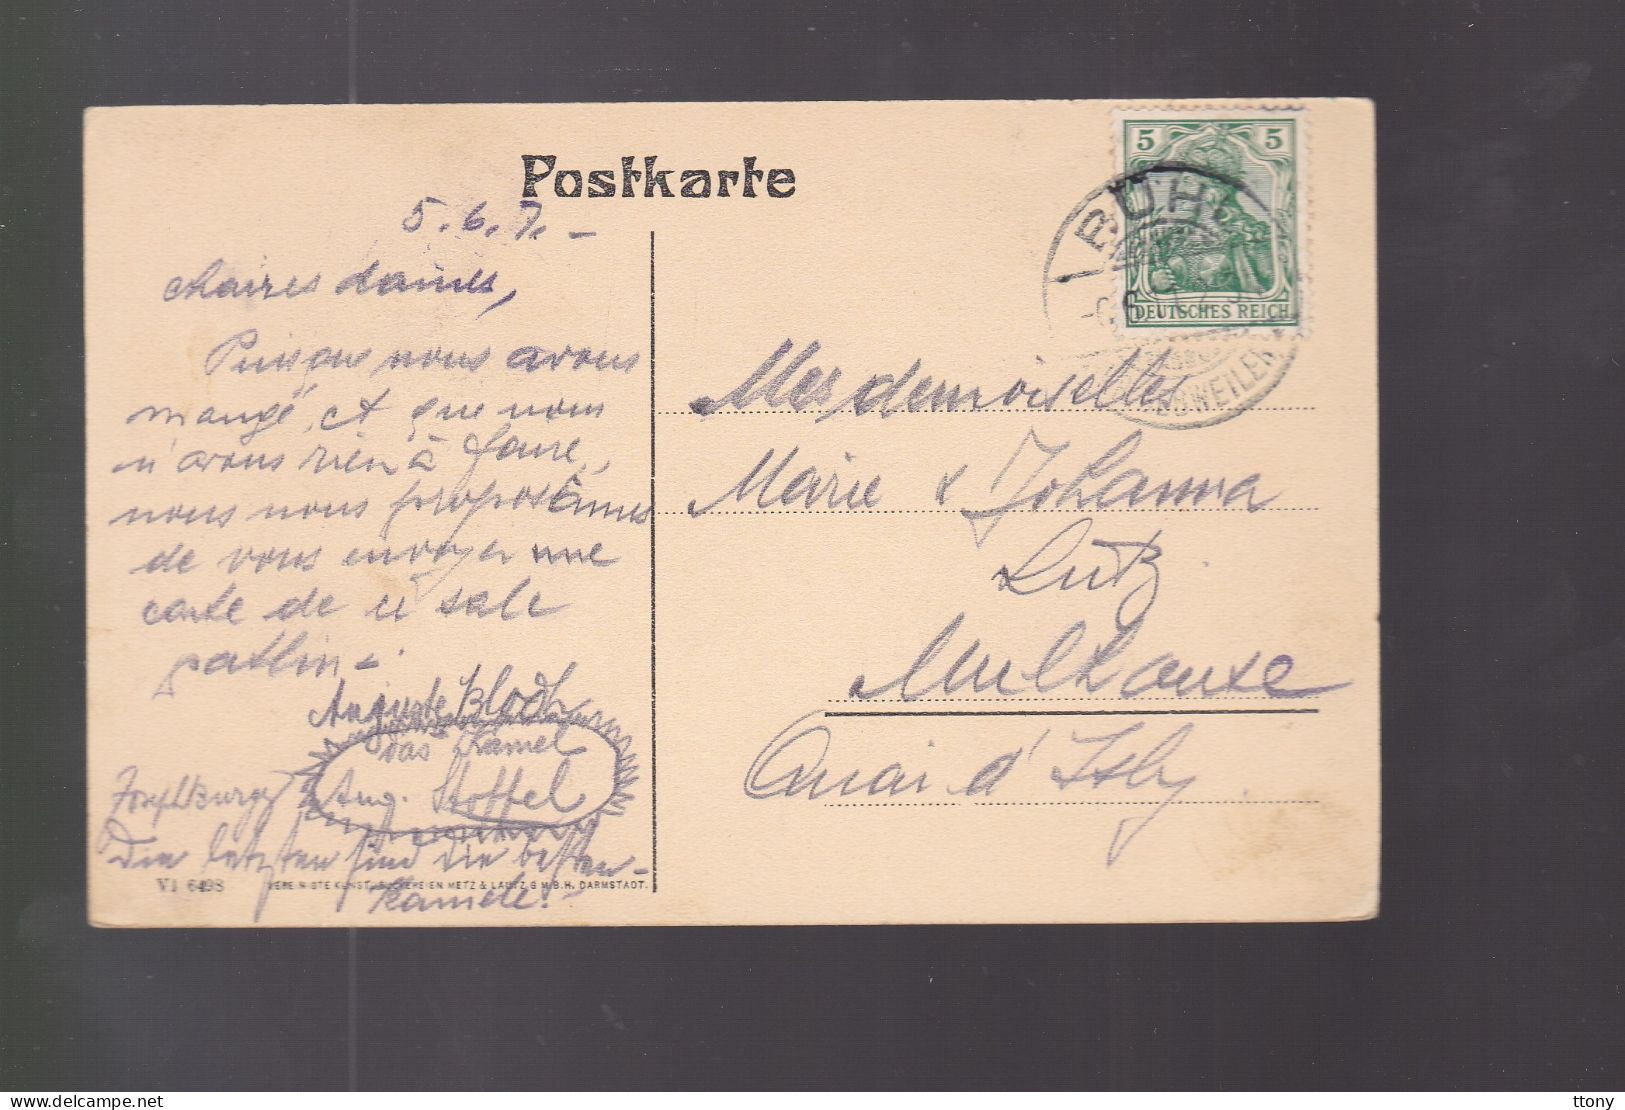 Postkarte
5.6.7.-
chaires dames,
Puisque nous avons
mangé, et que nous
n'avons rien à faire,
nous nous proposâmes
de vous envoyer une
carte de ce sale
patlin-.
Auguste Bloch
das Kamel
Aug. Stoffel
Die letzten sind die besten
Kamele!
VI 6498
VEREINIGTE KUNSTDRUCKEREIEN METZ & LAUTZ G.M.B.H. DARMSTADT.
5 5
DEUTSCHES REICH
BÜHL
WEILER
Mesdemoiselles
Marie & Johanna
Lutz
Mulhouse
Quai d'Isly
ttony